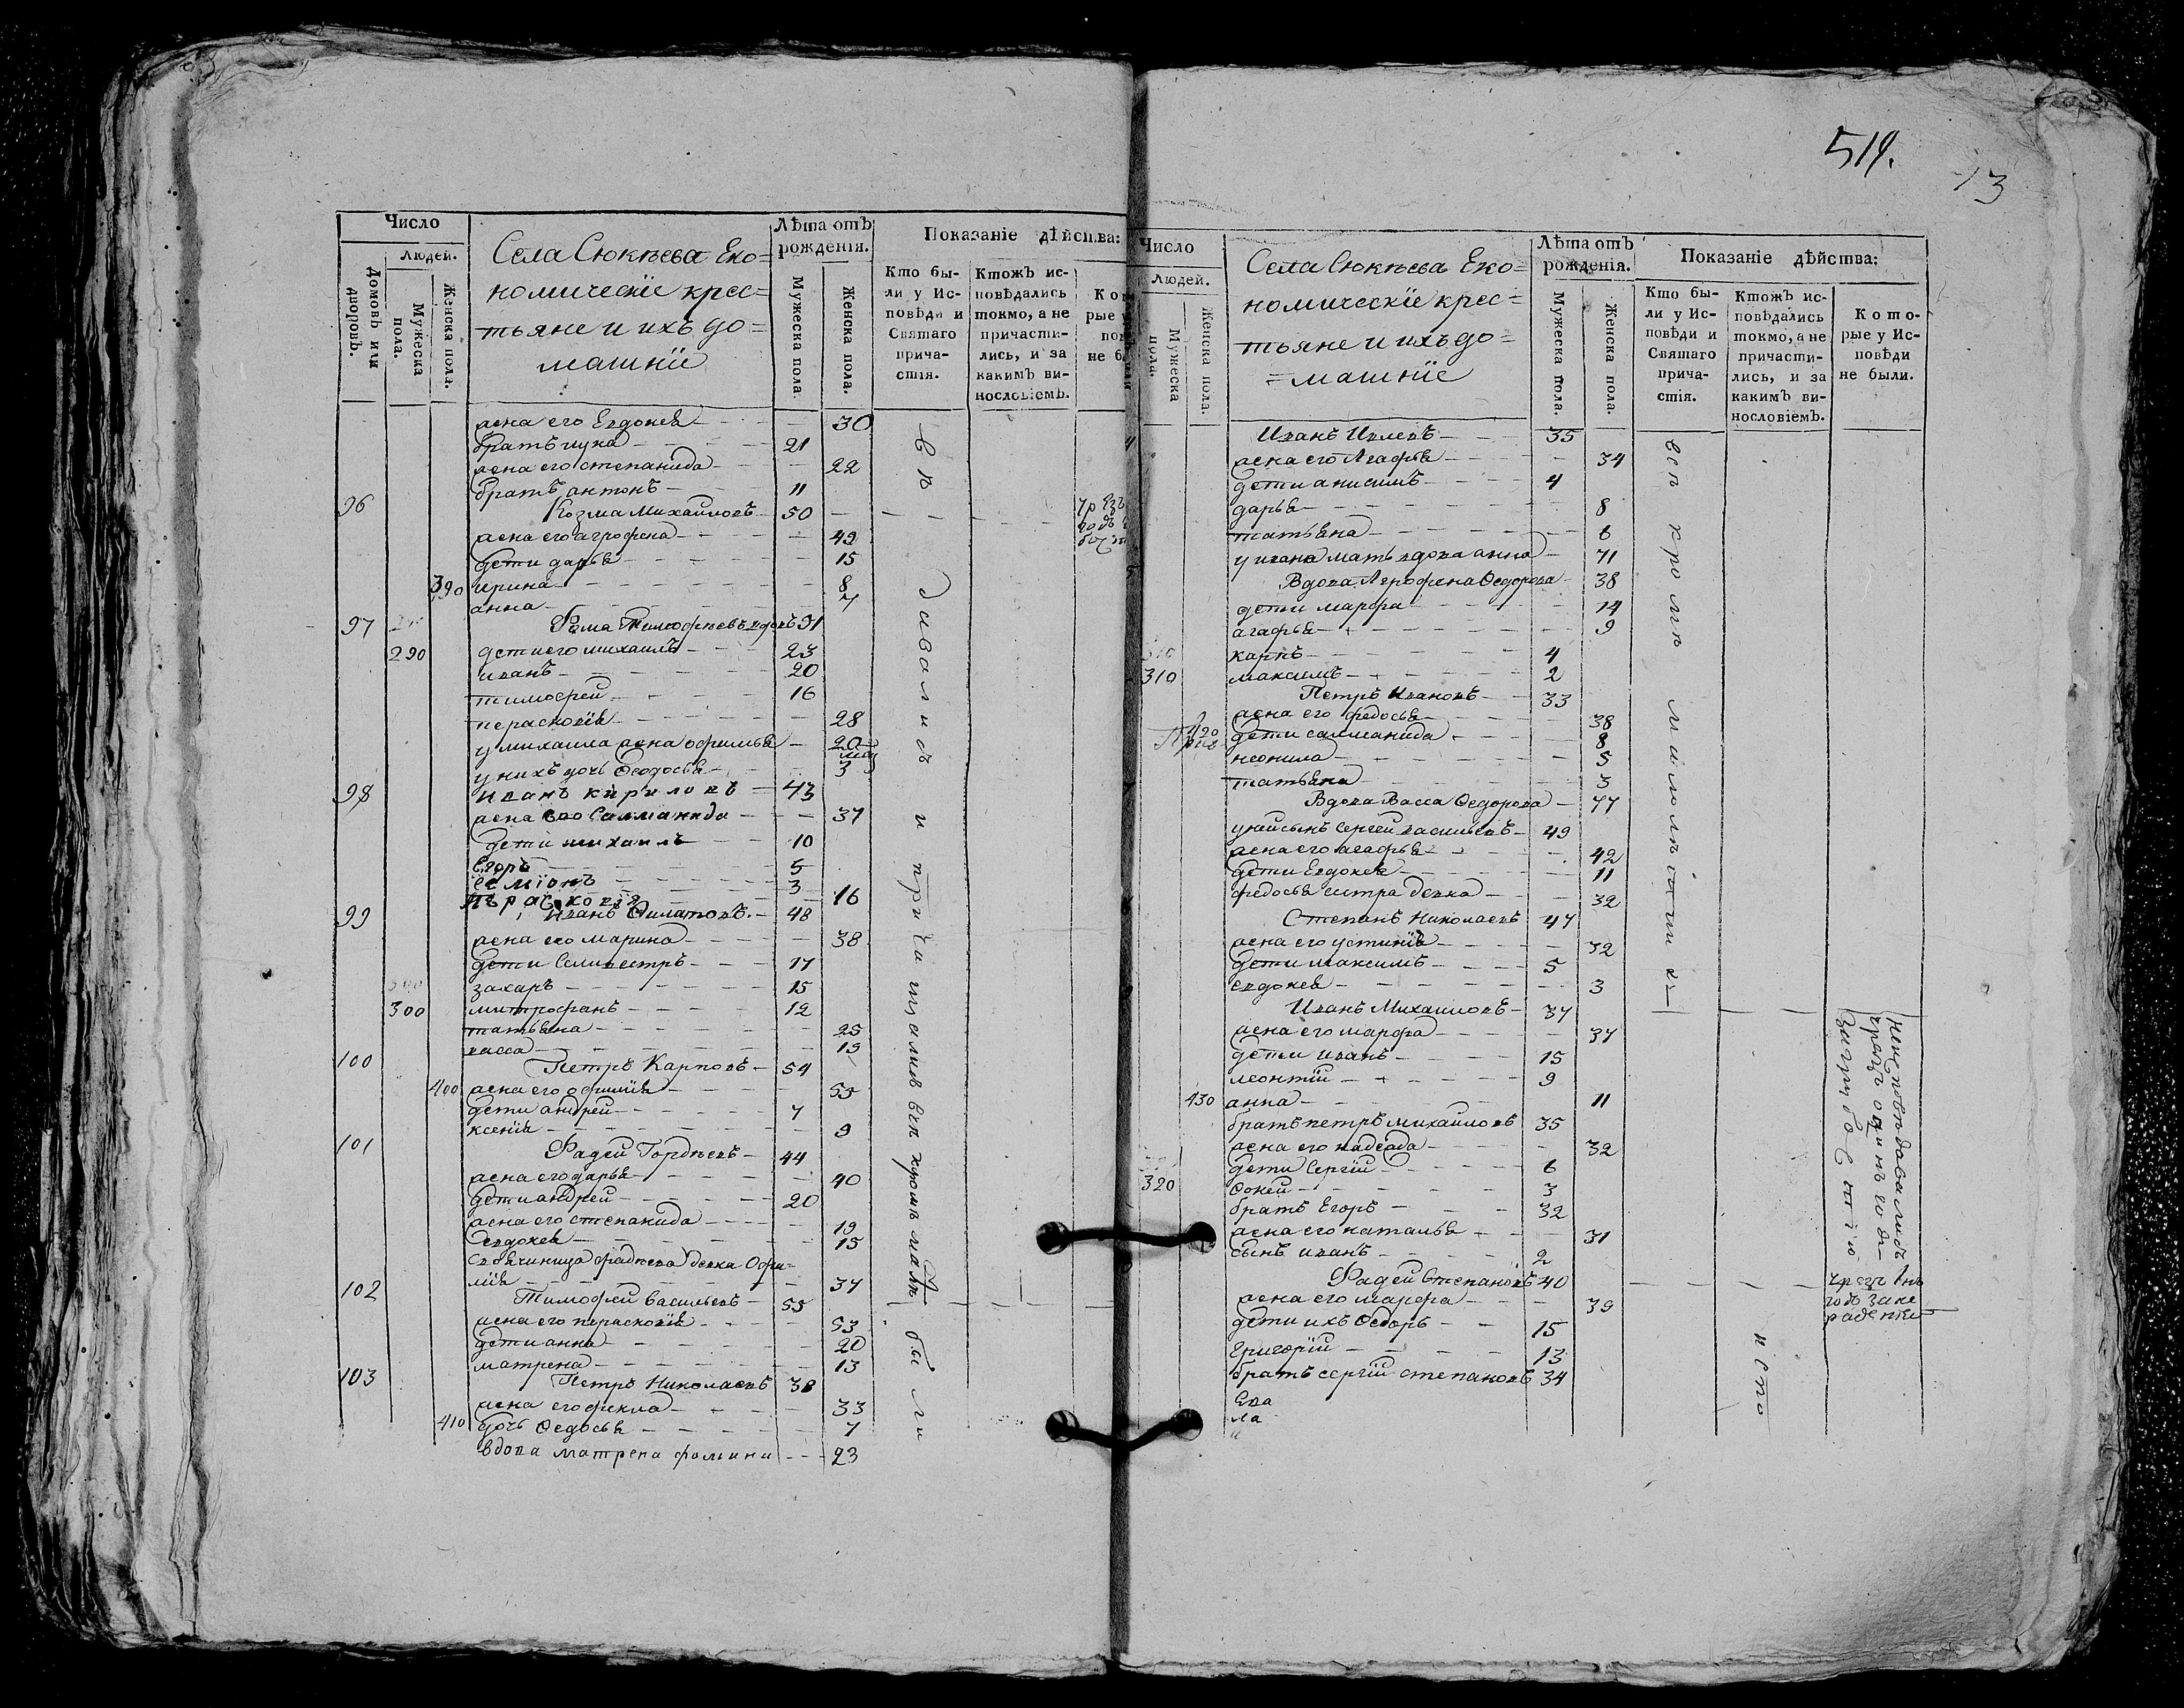 Число
Людей.
Домовъ или дворовъ.
Мужеска пола.
Женска пола.
Села Сюкѣева Еко=
номическіе крес=
тьяне и ихъ до=
машніе
Лѣта отъ рожденія.
Мужеска пола.
Женска пола.
Показаніе дѣйства:
Кто были у Исповѣди и Святаго причастія.
Ктожъ исповѣдались токмо, а не причастились, и за какимъ винословіемъ.
жена его Евдокея 30
братъ лука 21
жена его степанида 22
братъ антонъ 11
96 Козма Михаиловъ 50
жена его агрофена 49
дети дарья 15
390 ирина 8
анна 7
97 Фома Тимофѣевъ вдовъ 51
290 дети его михаилъ 23
иванъ 20
тимофей 16
перасковія 28
у михаила жена офимья 20
у нихъ дочь Феодосья 3
98 иванъ кириловъ 43
жена его Саламанида 37
дети михаилъ 10
Егоръ 5
семіонъ 3
перасковія 16
99 Иванъ Филатовъ 48
жена его марина 38
дети Селивестръ 17
захаръ 15
300 митрофанъ 12
татьяна 25
васса 19
100 Петръ Карповъ 54
400 жена его офимія 55
дети андрей 7
ксенія 9
101 Фадей Гордѣевъ 44
жена его дарья 40
дети андрей 20
жена его степанида 19
евдокея 15
Свояченица фадѣева девка Офи=
мія 37
102 Тимофей васильевъ 55
жена его перасковія 53
дети анна 20
матрена 13
103 Петръ Николаевъ 38
жена его фекла 33
410 дочь Федосья 7
вдова матрена фомина 23
исповѣдивались и причащались всѣ кромѣ мала были
519.
13
Число
Людей.
Мужеска пола.
Женска пола.
Села Сюкѣева Еко=
номическіе крес=
тьяне и ихъ до=
=машніе
Лѣта отъ рожденія.
Мужеска пола.
Женска пола.
Показаніе дѣйства:
Кто были у Исповѣди и Святаго причастія.
Ктожъ исповѣдались токмо, а не причастились, и за какимъ винословіемъ.
Которые у Исповѣди не были.
Иванъ Ивлевъ 35
жена его Агафья 34
дети анисимъ 4
дарья 8
татьяна 6
у ивана мать вдова анна 71
Вдова Агрофена Федорова 38
дети марфа 14
агафья 9
карпъ 4
310 максимъ 2
Петръ Ивановъ 33
жена его федосья 38
420 дети саламанида 8
неонила 5
татьяна 3
Вдова Васса Федорова 77
у ней сынъ Сергей васильевъ 49
жена его агафья 42
дети Евдокея 11
федосья сестра девка 32
Степанъ Николаевъ 47
жена его устинія 32
дети максимъ 5
евдокея 3
Иванъ Михаиловъ 37
жена его марфа 37
дети иванъ 15
леонтій 9
430 анна 11
братъ петръ михаиловъ 35
жена его надежда 32
дети Сергій 6
320 Фокей 3
братъ Егоръ 32
жена его наталья 31
сынъ иванъ 2
Фадей Степановъ 40
жена его марфа 39
дети ихъ Федоръ 15
Григорій 13
братъ сергій степановъ 34
всѣ кромѣ малолѣтних
неисповѣдавались
чрезъ одинъ годъ
чрезъ 1нъ
годъ за не
раденіе